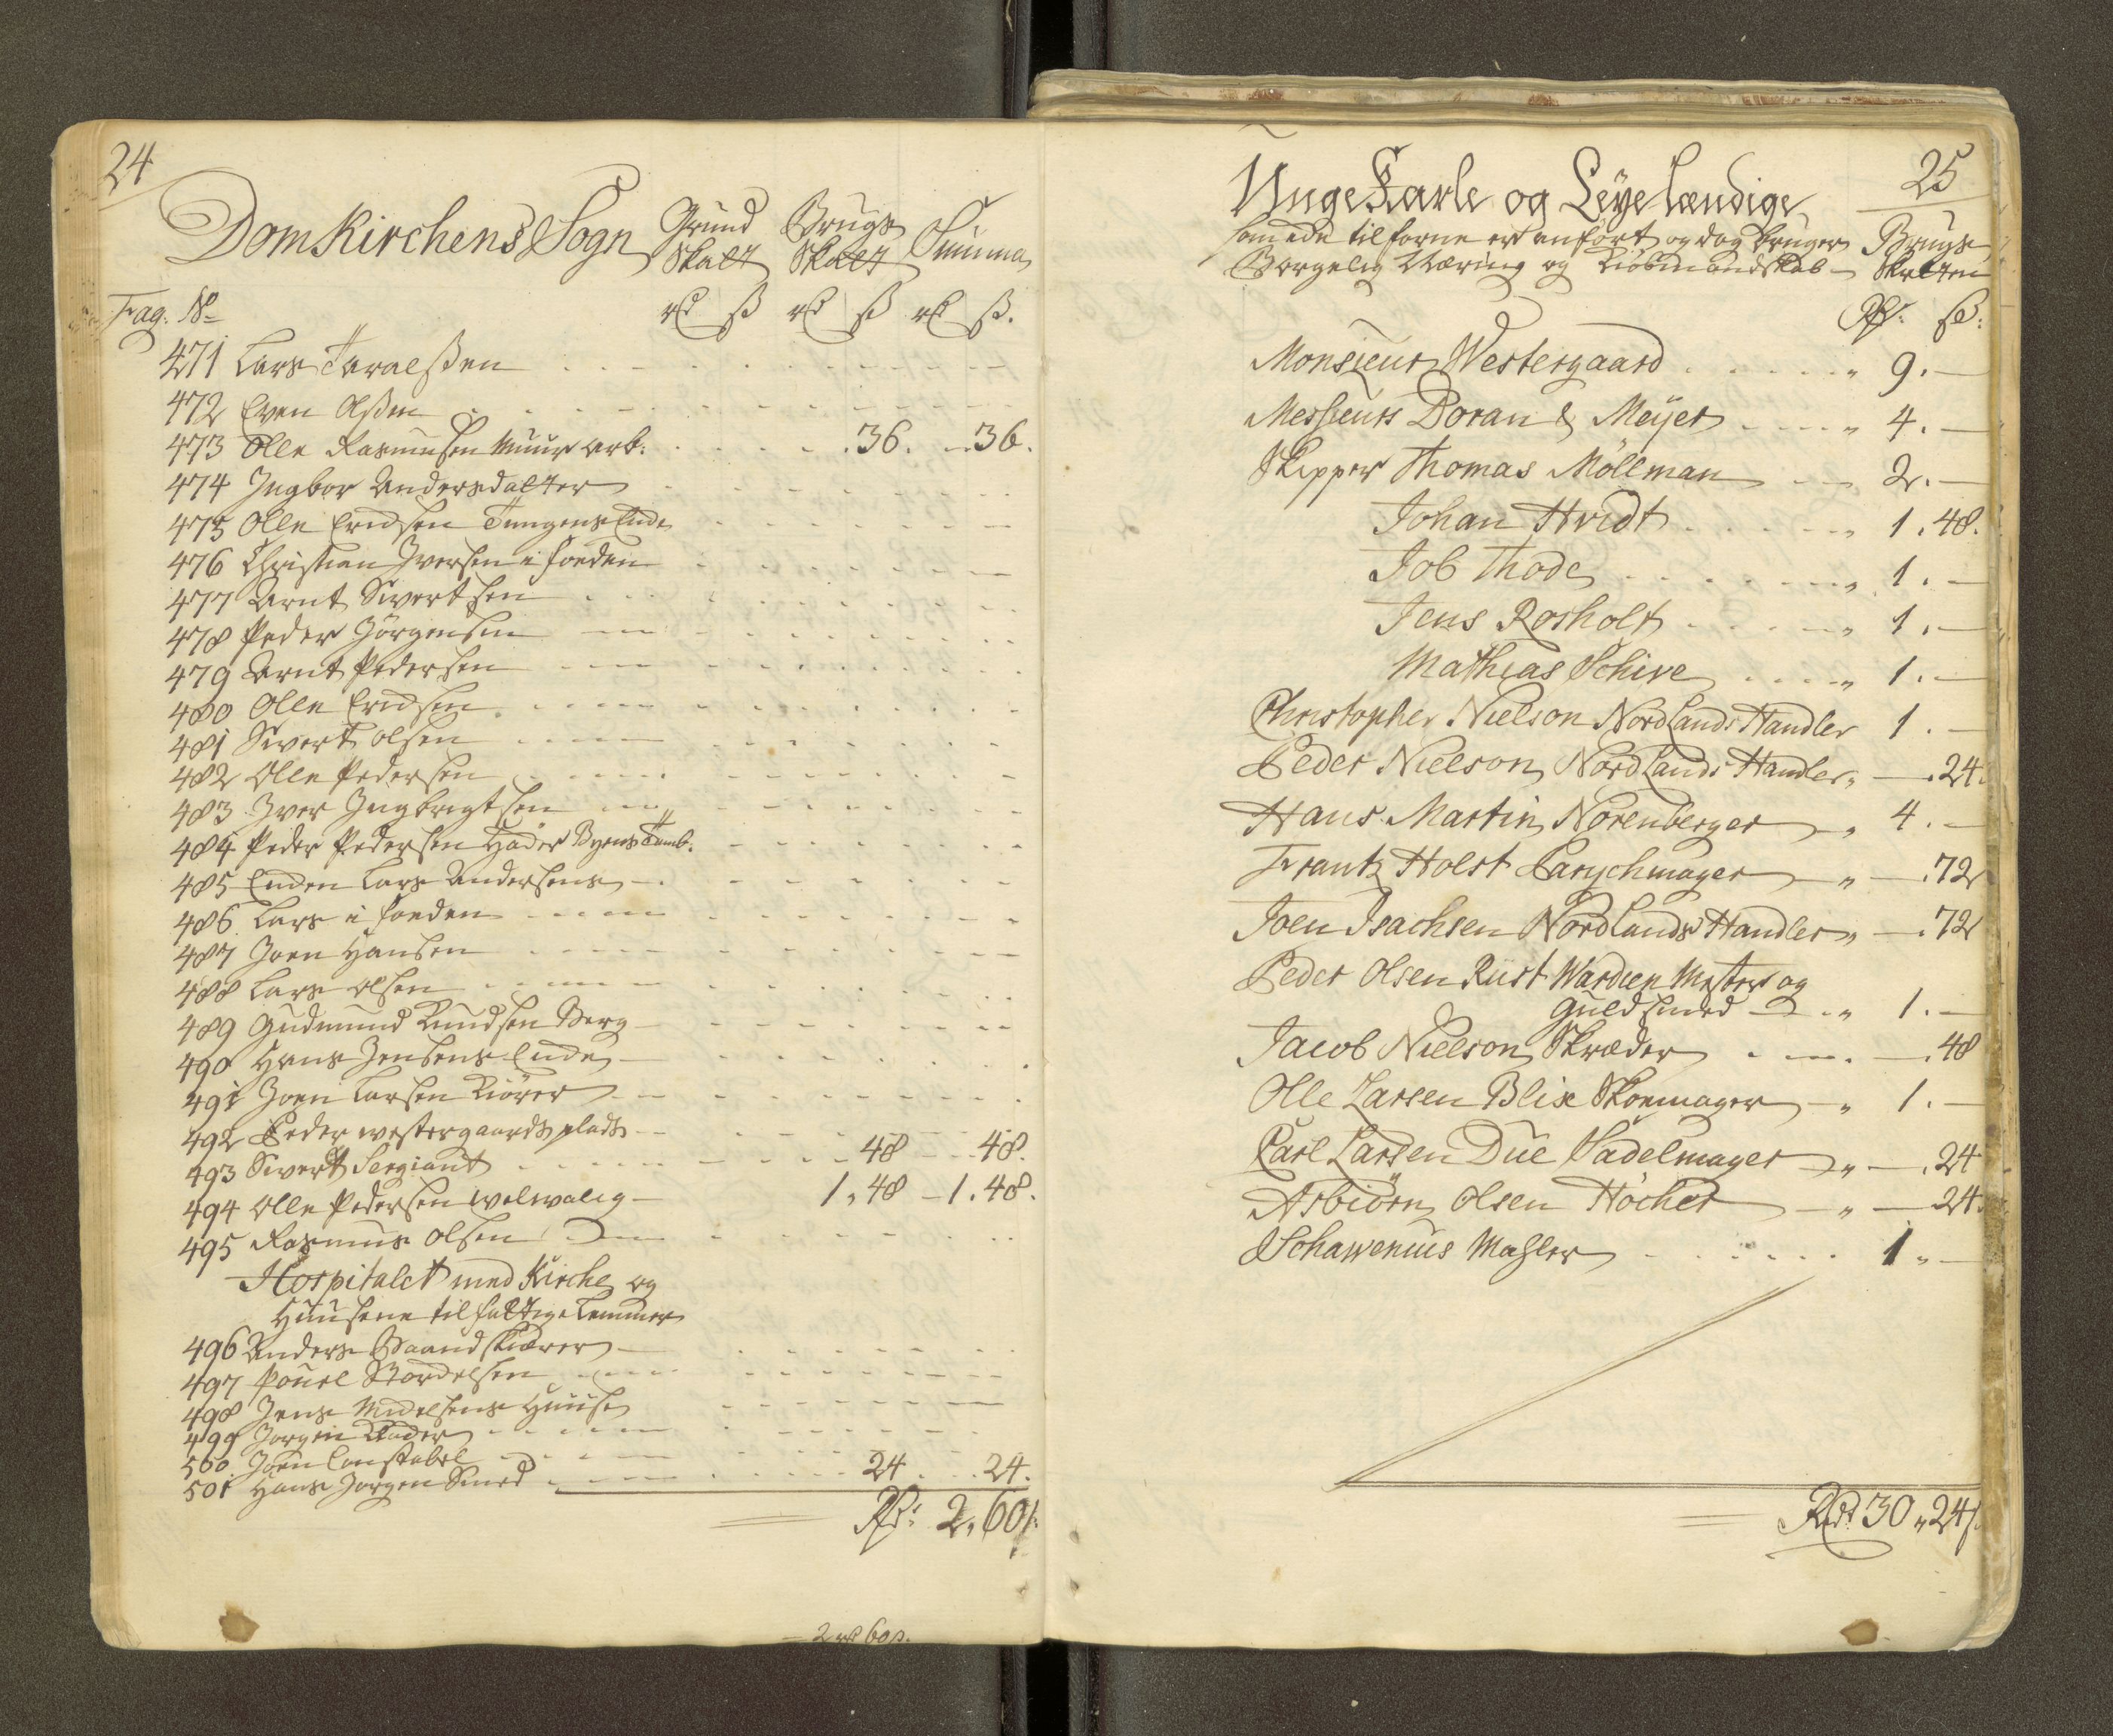 24
DomKirchens Sogn Grund Skatt Brugs Skatt Summa
Tag. No rd ß rd ß rd ß.
471 Lars Taralßen
472 Even Olßen
473 Olle Rasmusen Muur arb: 36. 36.
474 Ingbor Andersdatter
475 Olle Eridsen Tungens Enke
476 Christian Iversen i fieden
477 Arnt Sivertsen
478 Peder Jörgensen
479 Arnt Pedersen
480 Olle Eridsen
481 Sivert Olsen
482 Olle Pedersen
483 Iver Ingbrigtsen
484 Peder Pedersen Byens Tamb.
485 Enken Lars Andersens
486 Lars i fieden
487 Joen Hansen
488 Lars Olsen
489 Gudmund Knudsen Berg
490 Hans Jensens Enke
491 Joen Larsen Kiörer
492 Peder westergaards plads
493 Sivert Sergiant 48 48.
494 Olle Pedersen welwalig 1.48 1.48.
495 Rasmus Olsen
Hospitalet med Kirche og
Huusene til fattige Lemmer
496 Anders Baandskiærer
497 Pouel Bordelsen
498 Jens Midelsens Huuse
499 Jorgen
500. Joen Constabel
501 Hans Jorgen Smed 24 24.
Rd: 2.60ß.
2 rd 60 ß.
25
Unge Karle og Leyelændige
som ede tilforne er anført og dog bruger Brugs
Borgelig Næring og Kiöbmandskab Skatten
Rd: ß:
Monsieur Westergaard 9.
Messieurs Doran & Meyer 4.
Skipper Thomas Möllman 2.
Johan Hvidt 1.48.
Job Thode 1.
Jens Rosholt 1.
Mathias Schive 1.
Christopher Nielson Nordlands Handler 1.
Peder Nielson Nordlands Handler .24.
Hans Martin Norenberger 4.
Frantz Holst Parychmager .72
Joen Isachsen Nordlands Handler .72
Peder Olsen Rüst Wardien Mester og
Guldsmed 1.
Jacob Nielson Skræder .48
Olle Larsen Blix Skoemager 1.
Carl Larsen Due Sadelmager .24
Asbiörn Olsen Höcher 24.
Schawenius Mahler 1.
Rdr 30.24ß.